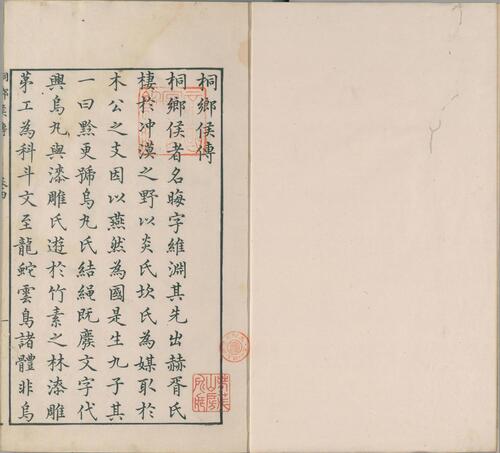 桐鄉侯傳
桐鄉侯者名晦字維淵其先出赫胥氏
棲於冲漠之野以炎氏坎氏為媒取於
木公之支因以燕然為國是生九子其
一曰黔更號烏丸氏結繩既廢文字代
興烏丸與漆雕氏遊於竹素之林漆雕
苐工為科斗文至龍蛇雲鳥諸體非烏
桐鄉侯傳
一